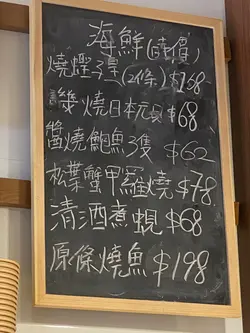 海鮮(時價)
燒蟶子皇(2條) $168
燒日本元貝 $68
醬燒鮑魚3隻 $62
松葉蟹甲羅燒 $78
清酒煮蜆 $68
原條燒魚 $198